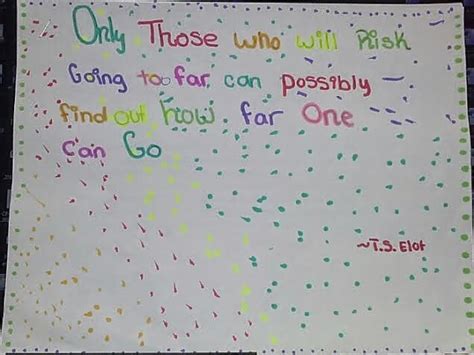 Only Those who will Risk
Going to far can possibly
find out how far One
can Go
~T.S. Eliot